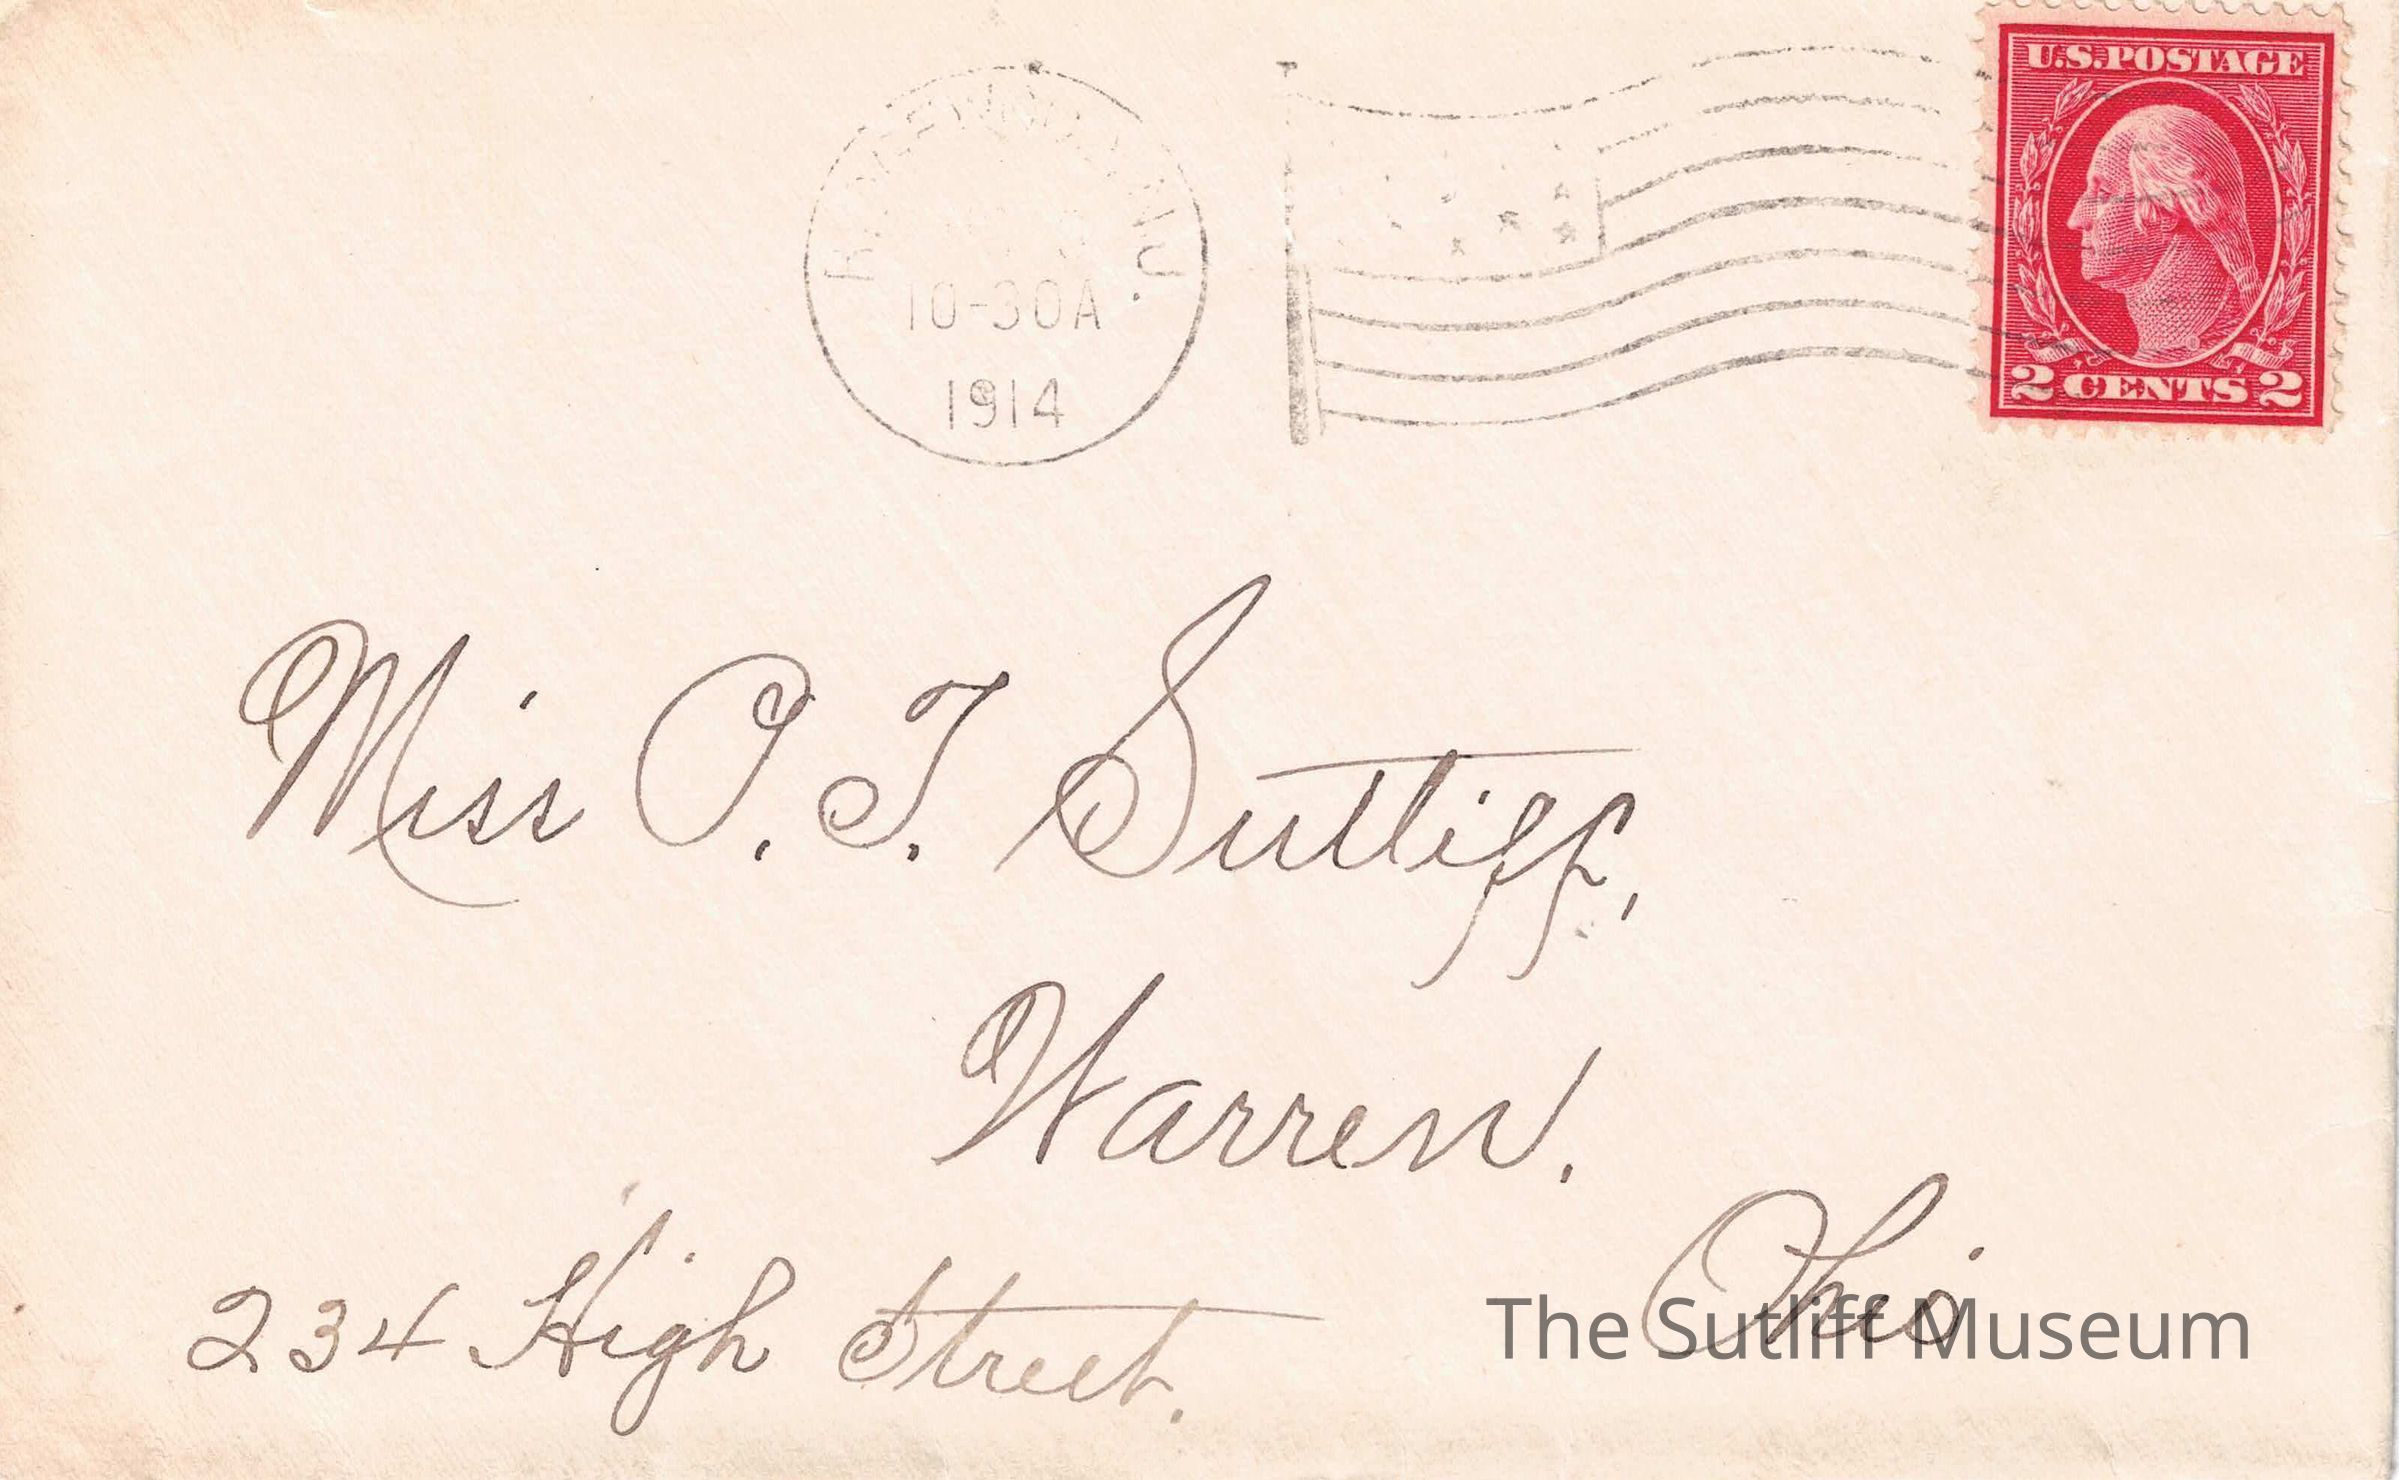 10-30A
1914
U.S. POSTAGE
2 CENTS 2
Miss P. T. Sutliff,
Warren.
Ohio
234 High Street.
The Sutliff Museum